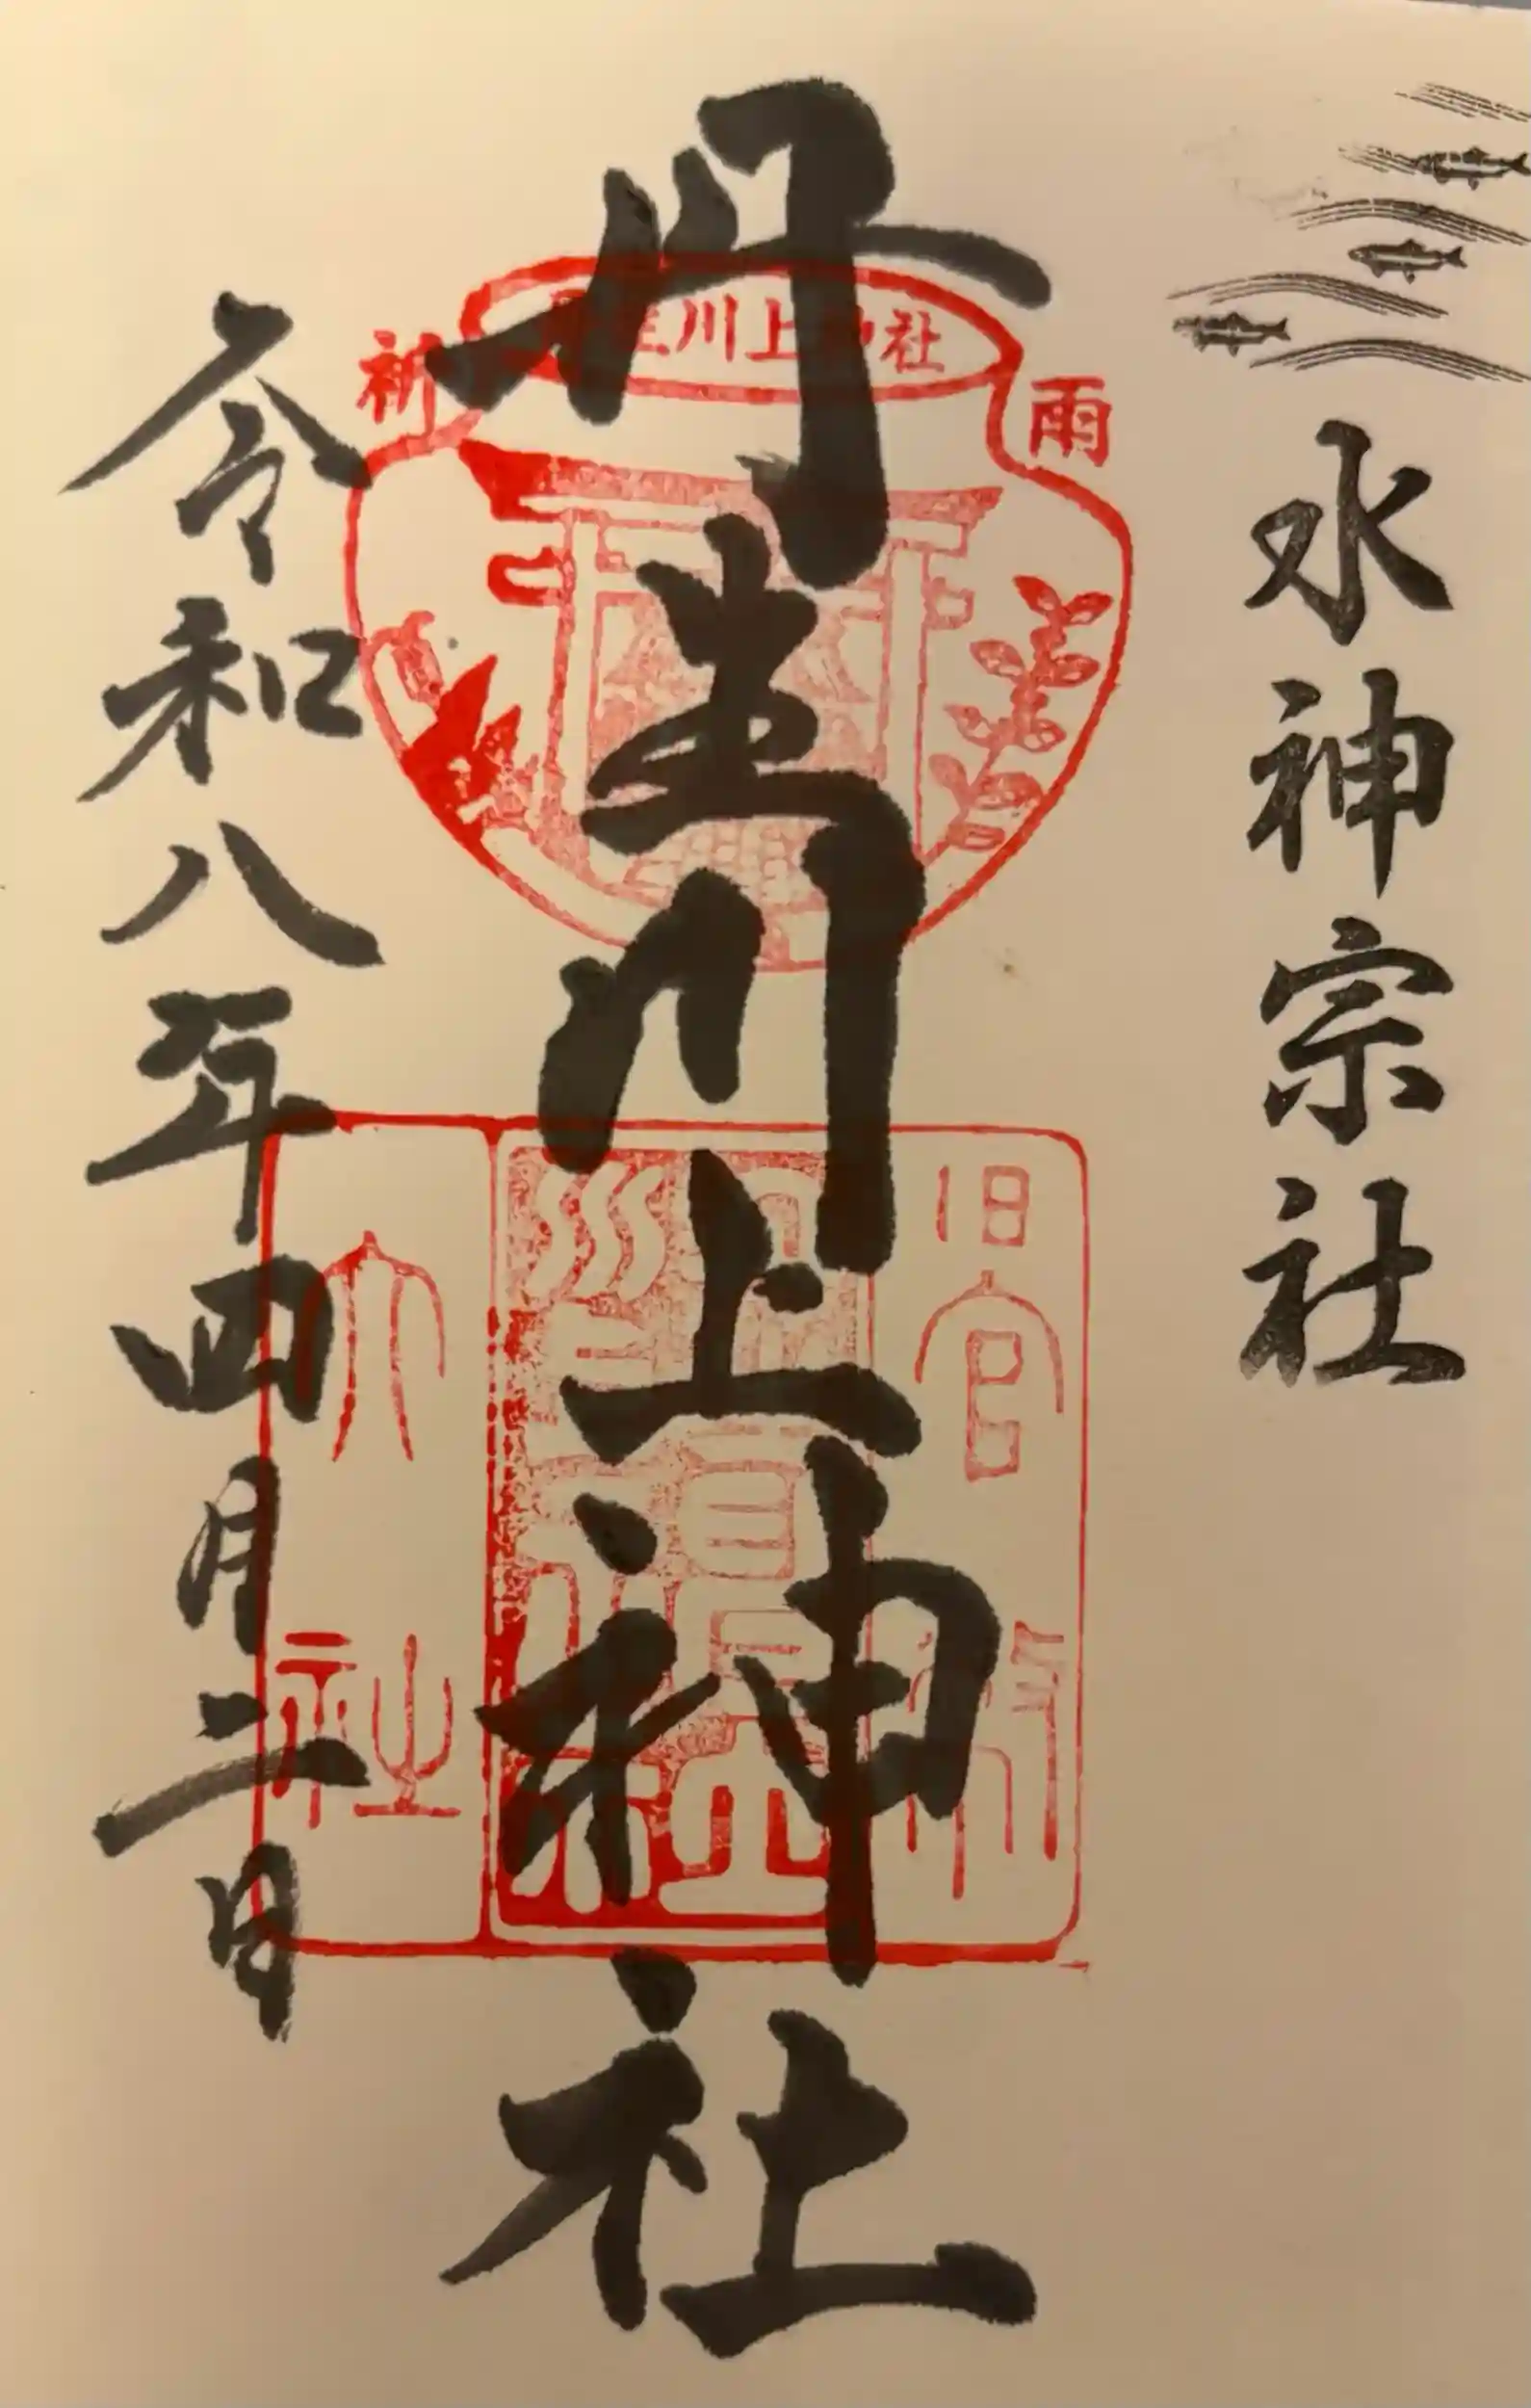 水神宗社
丹生川上神社
祈雨
丹生川上神社
旧官幣
大社
令和八年四月二日